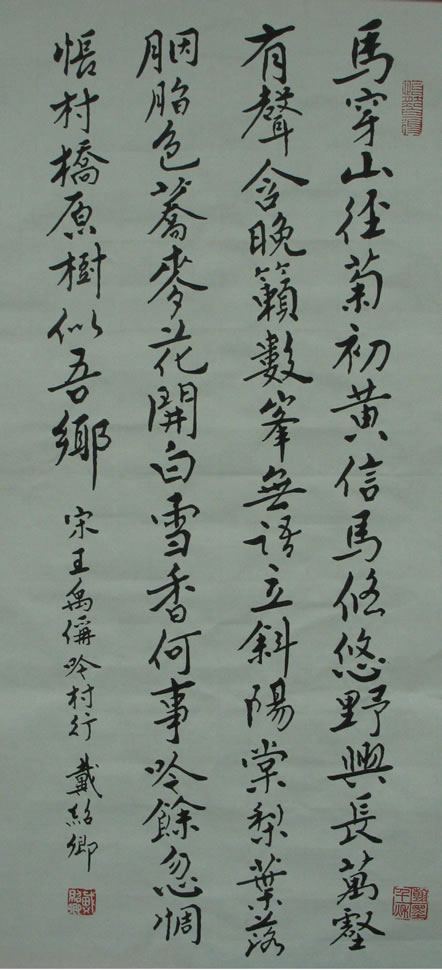 馬穿山徑菊初黃信馬悠悠野興長萬壑
有聲含晚籟數峯無語立斜陽棠梨葉落
胭脂色蕎麥花開白雪香何事吟餘忽惆
悵村橋原樹似吾鄉 宋王禹偁吟村行 戴紹卿